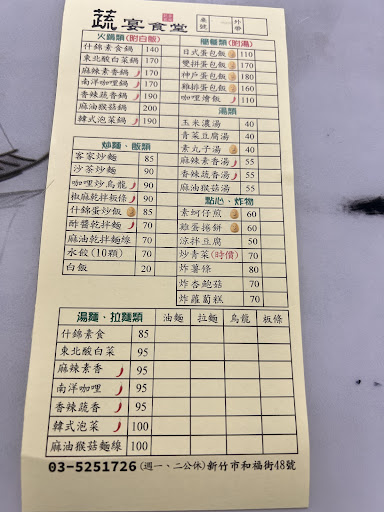 蔬宴食堂
桌號 一 外帶
火鍋類(附白飯)
什錦素食鍋 140
東北酸白菜鍋 170
麻辣素香鍋 170
南洋咖哩鍋 170
香辣蔬香鍋 190
麻油猴菇鍋 200
韓式泡菜鍋 190
簡餐類(附湯)
日式蛋包飯 110
雙拼蛋包飯 170
神戶蛋包飯 180
雞排蛋包飯 160
咖哩燴飯 110
湯類
玉米濃湯 40
青菜豆腐湯 40
素丸子湯 40
麻辣素香湯 55
香辣蔬香湯 55
麻油猴菇湯 55
炒麵、飯類
客家炒麵 85
沙茶炒麵 90
咖哩炒烏龍 90
椒麻乾拌板條 90
什錦蛋炒飯 85
酢醬乾拌麵 70
麻油乾拌麵線 70
水餃(10顆) 70
白飯 20
點心、炸物
素蚵仔煎 60
雞蛋捲餅 60
涼拌豆腐 50
炒青菜(時價)
炸薯條 80
炸杏鮑菇 70
炸蘿蔔糕 70
湯麵、拉麵類 油麵 拉麵 烏龍 板條
什錦素食 85
東北酸白菜 95
麻辣素香 95
南洋咖哩 95
香辣蔬香 95
韓式泡菜 100
麻油猴菇麵線 100
03-5251726(週一、二公休)新竹市和福街48號